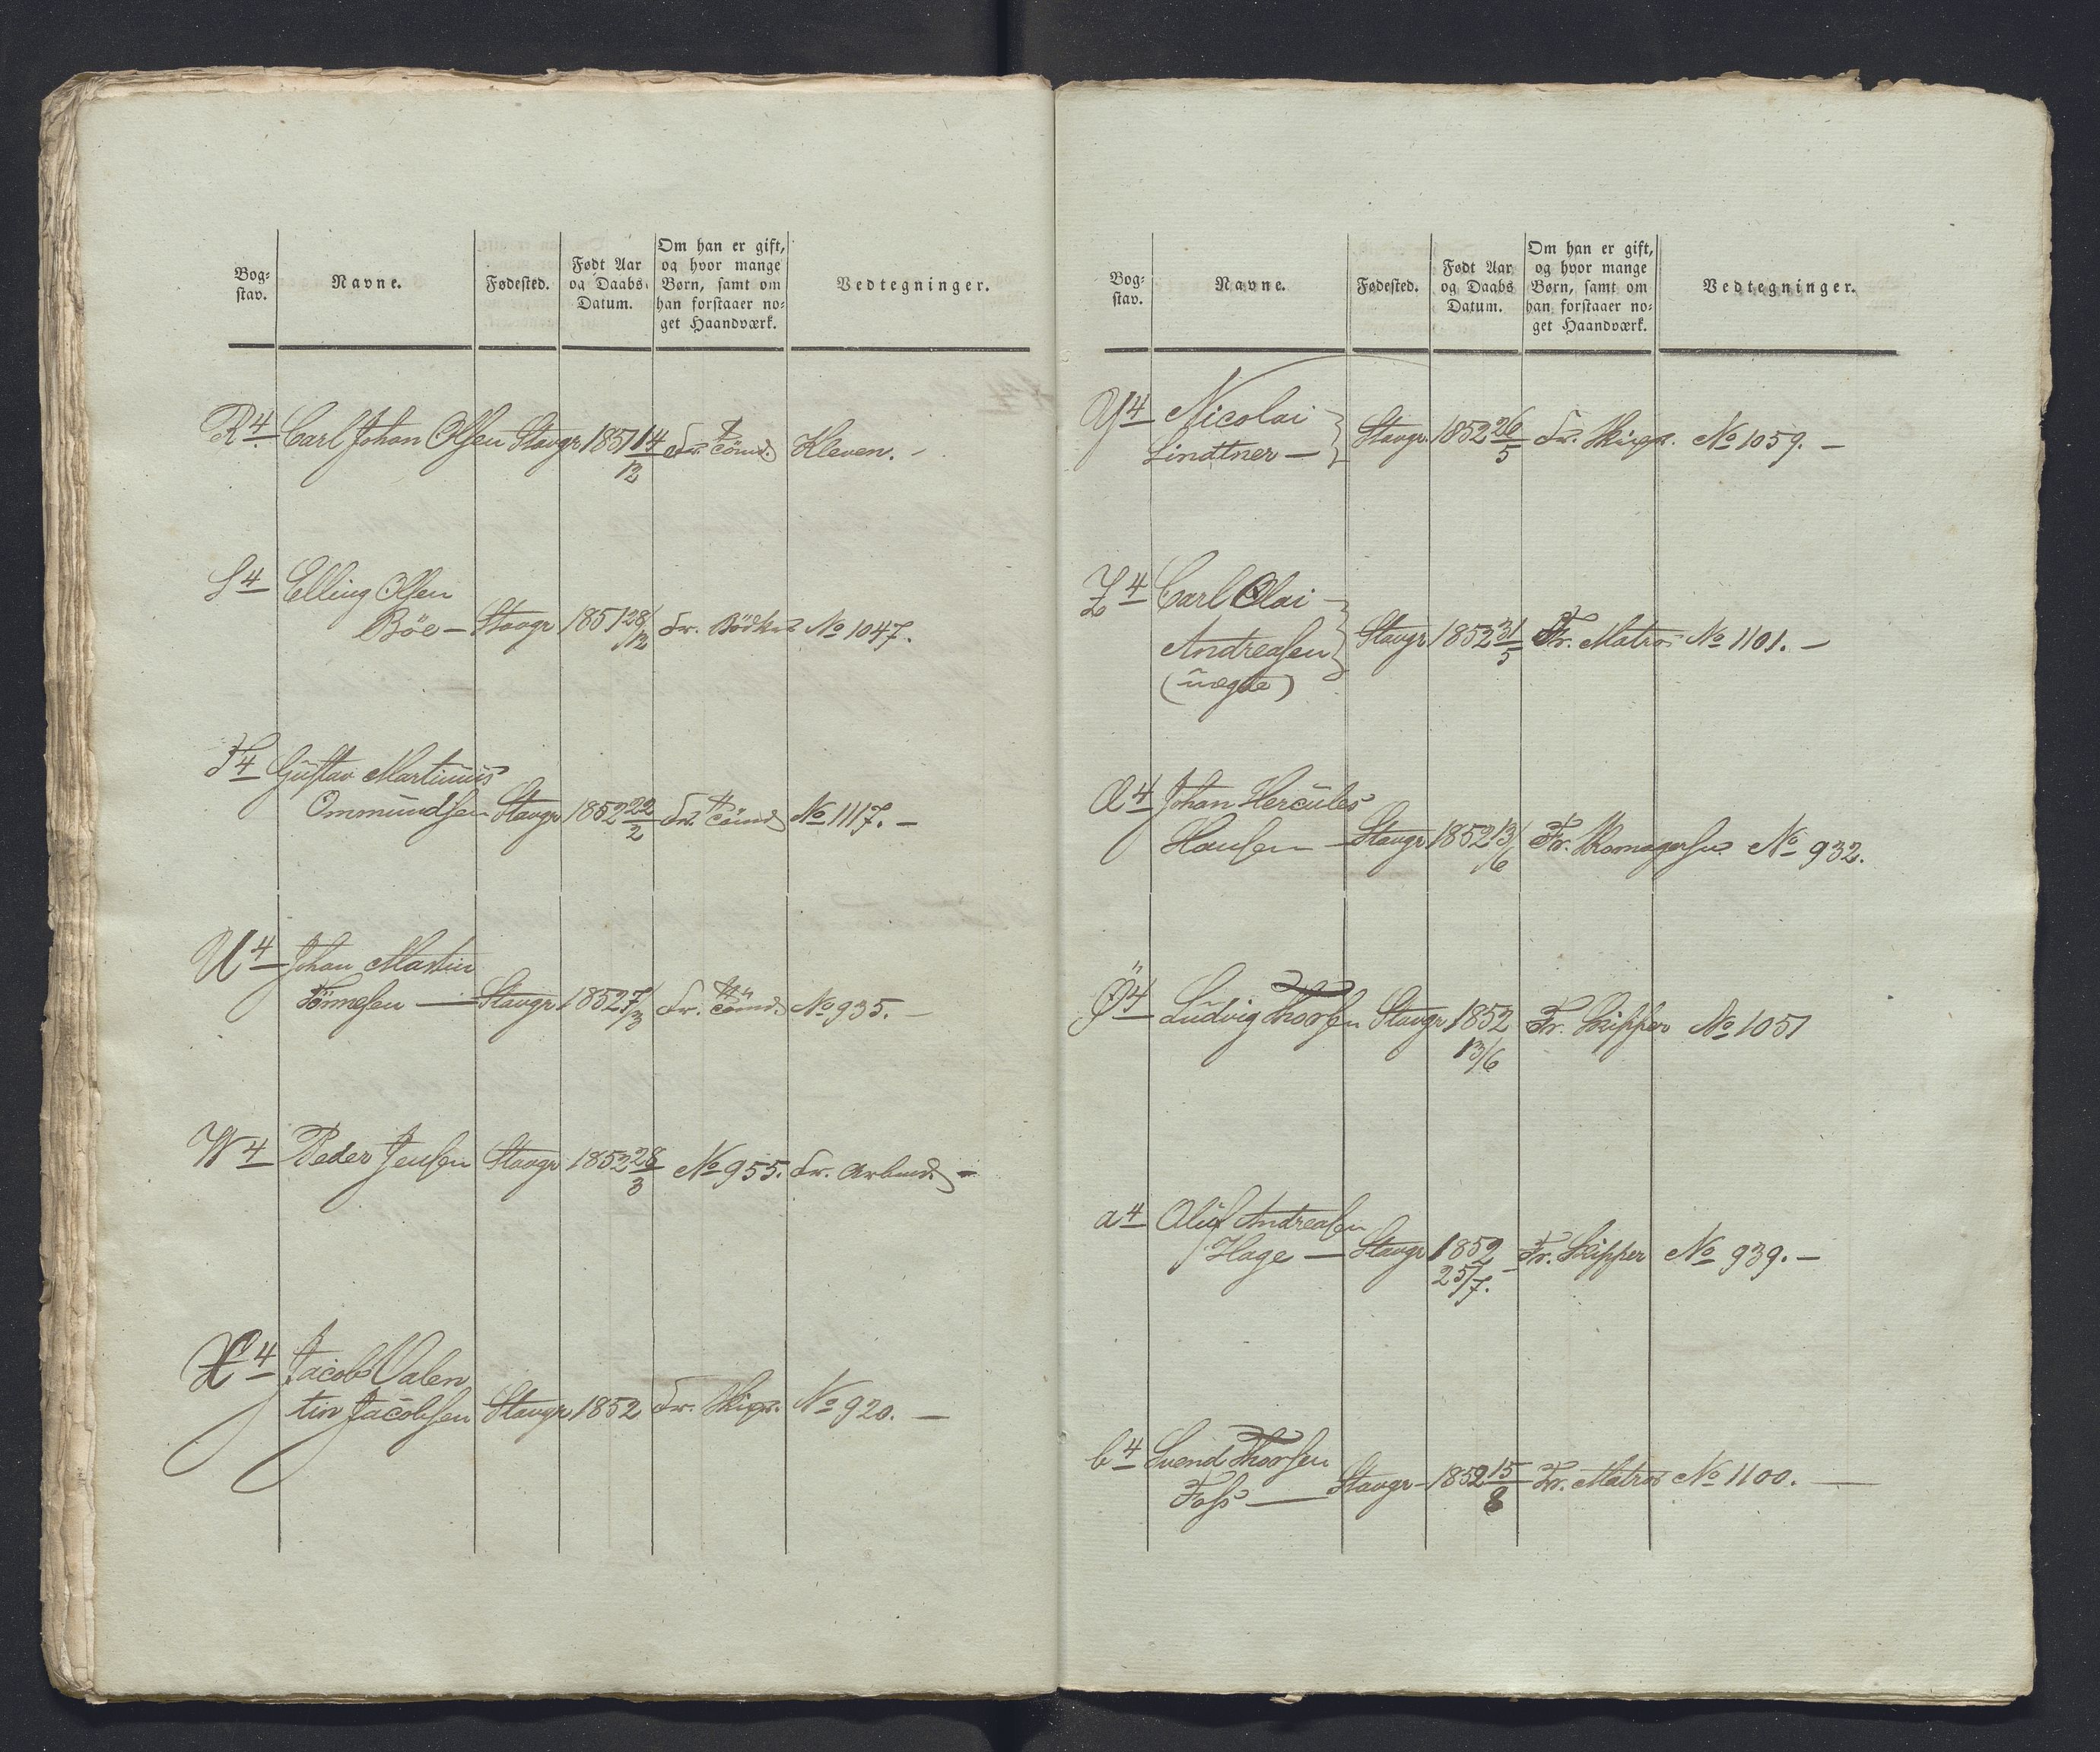 Bog-
stav.
Navne.
Fødested.
Født Aar
og Daabs
Datum.
Om han er gift,
og hvor mange
Børn, samt om
han forstaaer no-
get Haandværk.
Vedtegninger.
R4 Carl Johan Olsen Stavgr 1851 14/12 Fr. Tömd. Kleven. -
S4 Elling Olsen
Böe - Stavgr 1851 28/12 Fr. Bödker No 1047.
T4 Gustav Martinius
Ommundsen Stavgr 1852 22/2 Fr. Tömd No 1117. -
U4 Johan Martin
Tönnesen - Stavgr. 1852 7/3 Fr. Tömd. No 935. -
W4 Peder Jensen Stavgr 1852 28/3 No 955. Fr. Arbmd. -
X4 Jacob Valen
tin Jacobsen Stavgr 1852 Fr. Skipr. No 920. -
Bog-
stav.
Navne.
Fødested.
Født Aar
og Daabs
Datum.
Om han er gift,
og hvor mange
Børn, samt om
han forstaaer no-
get Haandværk.
Vedtegninger.
Y4 Nicolai
Lindtner - Stavgr. 1852 26/5 Fr. Skipr. No 1059. -
Z4 Carl Olai -
Andreasen Stavgr 1852 31/5 Fr. Matros No 1101. -
(uægte)
Æ4 Johan Hercules
Hansen - Stavgr 1852 13/6 Fr. No 932.
Ø4 Ludvig Thorsen Stavgr 1852 Fr. Skipper No 1051
13/6
a4 Oluf Andreasen
Hage - Stavgr 1852 - Fr. Skipper No 939. -
25/7.
b4 Svend Thorsen
Foss - Stavgr - 1852 15/8 Fr. Matros No 1100. -